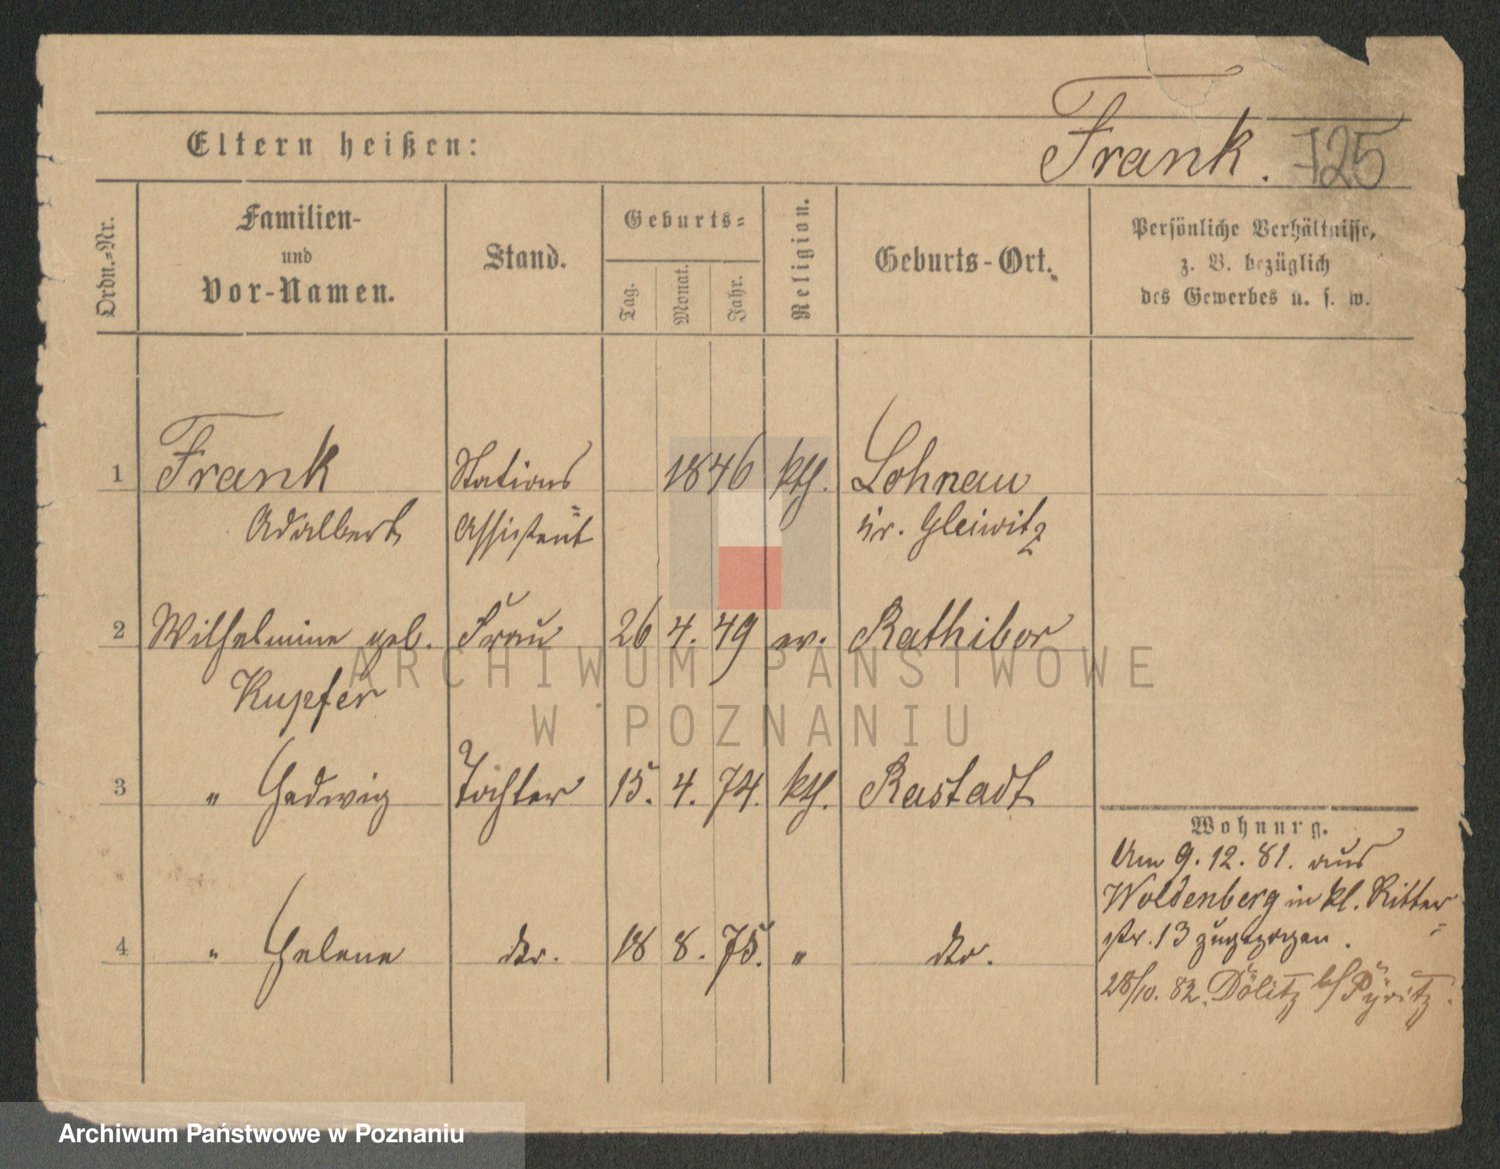 Eltern heißen:
Frank. 125
Ordn.-Nr.
Familien-
und
Vor-Namen.
Stand.
Geburts-
Tag.
Monat.
Jahr.
Religion.
Geburts-Ort.
Persönliche Verhältnisse,
z. B. bezüglich
des Gewerbes u. s. w.
1 Frank Stations 1846 kth. Lohnau
Adalbert Assistent Kr. Gleiwitz
2 Wilhelmine geb. Frau 26 4. 49 ev. Rathibor
Kupfer
3 " Hedwig Tochter 15. 4. 74. kth. Rastadt
4 " Helene do. 18 8. 75. " do.
Wohnung.
Am 9. 12. 81. aus
Woldenberg in kl. Ritter
str. 13 zugezogen.
28/10. 82. Dölitz b/ Pyritz.
ARCHIWUM PAŃSTWOWE
W POZNANIU
Archiwum Państwowe w Poznaniu